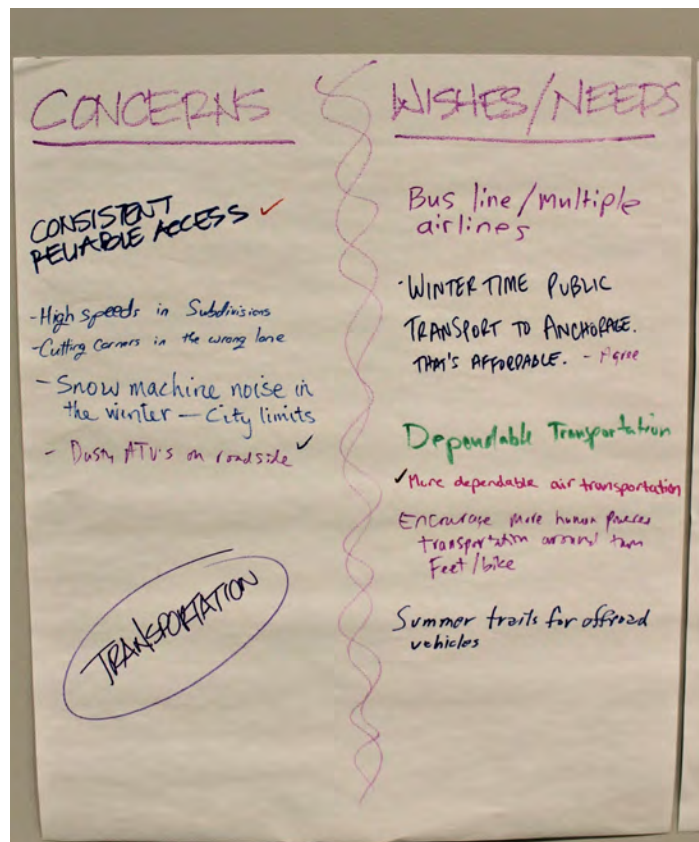 CONCERNS
CONSISTENT
RELIABLE ACCESS ✓
-High speeds in Subdivisions
-Cutting Corners in the wrong lane
- Snow machine noise in
the winter — City limits
- Dusty ATV's on roadside ✓
TRANSPORTATION
WISHES/NEEDS
Bus line/multiple
airlines
-WINTER TIME PUBLIC
TRANSPORT TO ANCHORAGE.
THAT'S AFFORDABLE. - Agree
Dependable Transportation
✓More dependable air transportation
Encourage more human powered
transportation around town
Feet/bike
Summer trails for offroad
vehicles